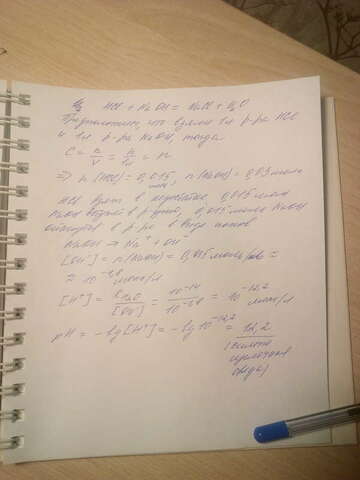 HCl + NaOH = NaCl + H₂O
Предположим, что взяли 1л р-ра HCl
и 1л р-ра NaOH, тогда
C = n/V = n/1л = n
⇒ n(HCl) = 0,015 моль, n(NaOH) = 0,03 моль
HCl в 0,015 моль
NaOH 0,015 моль NaOH
в р-ре в виде ионов
NaOH → Na⁺ + OH⁻
[OH⁻] = n(NaOH) = 0,015 моль/л =
= 10⁻¹·⁸ моль/л
[H⁺] = K H₂O / [OH⁻] = 10⁻¹⁴ / 10⁻¹·⁸ = 10⁻¹²·² моль/л
pH = −lg[H⁺] = −lg 10⁻¹²·² = 12,2
(сильно
щелочная
среда)